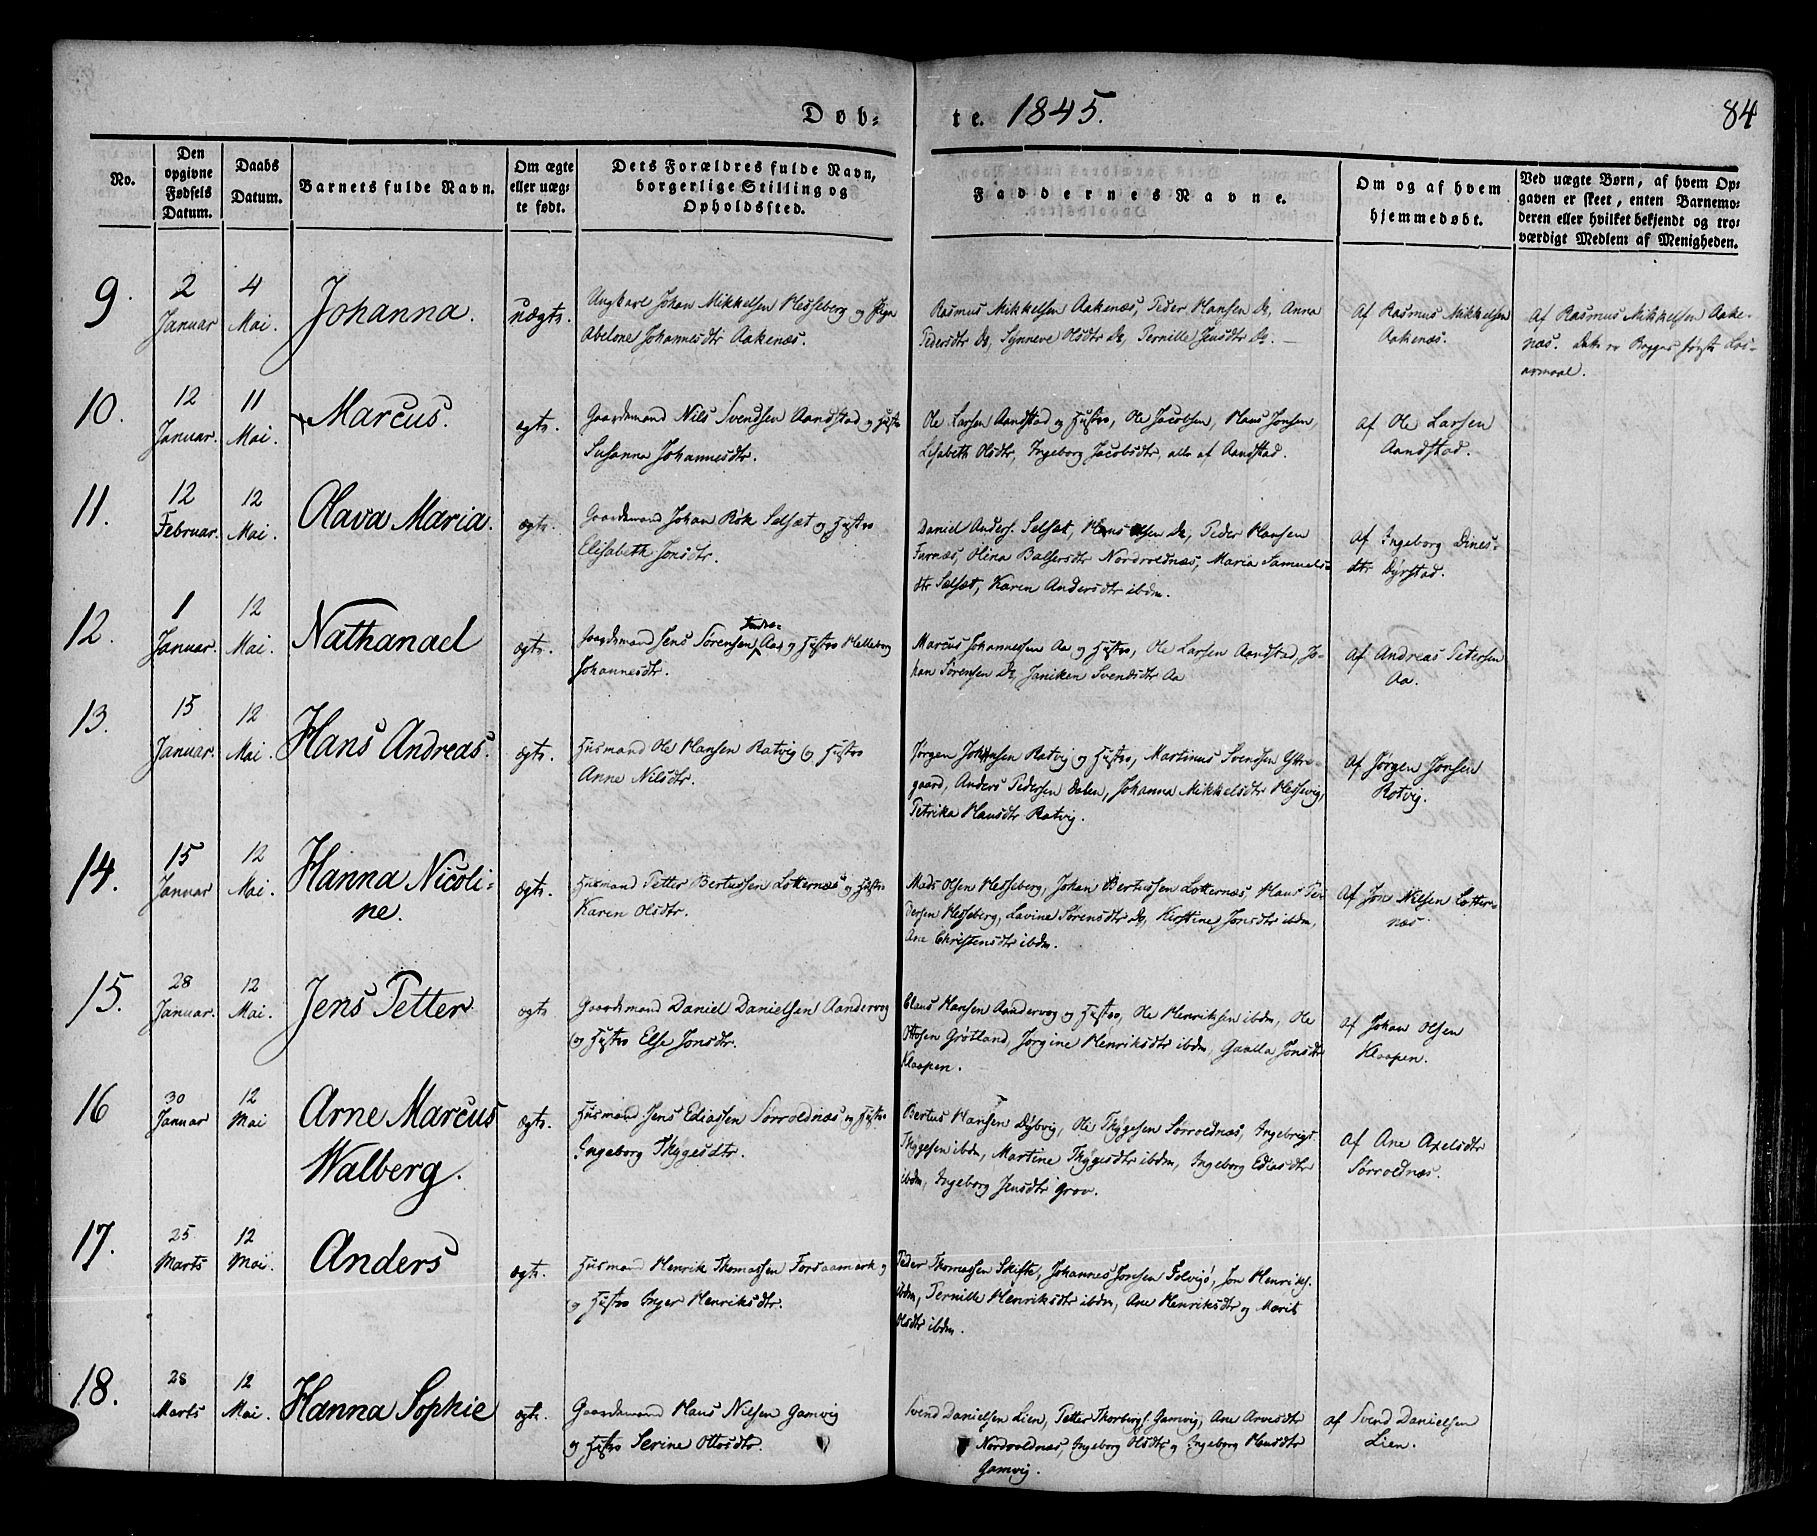 Døb-
te. 1845.
84
No.
Den opgivne Fødsels Datum.
Daabs Datum.
Barnets fulde Navn.
Om ægte eller uæg-te født.
Dets Forældres fulde Navn, borgerlige Stilling og Opholdssted.
Faddernes Navne.
Om og af hvem hjemmedøbt.
Ved uægte Børn, af hvem Op-
gaven er skeet, enten Barnemo-
deren eller hvilket bekjendt og tro-
værdigt Medlem af Menigheden.
9.
2 Januar
4 Mai.
Johanna.
uægte.
Ungkarl Johan Mikkelsen Hesseberg og Pige
Abelone Johannesdtr Aakenæs.
Rasmus Mikkelsen Aakenæs, Peder Hansen Do, Anna
Pedersdtr Do, Synneve Olsdtr Do, Pernille Jensdtr Do. —
Af Rasmus Mikkelsen
Aakenæs.
Af Rasmus Mikkelsen Aake-
næs. Dette er Begges første Lei-
ermaal.
10.
12 Januar.
11 Mai.
Marcus.
ægte.
Gaardmand Nils Svendsen Aandstad og Hustro
Susanna Johannesdtr.
Ole Larsen Aandstad og Hustro, Ole Jacobsen, Hans Jonsen,
Lisabeth Olsdtr, Ingeborg Jacobsdtr, alle af Aandstad.
af Ole Larsen
Aandstad.
11.
12 Februar.
12 Mai.
Olava Maria.
ægte.
Gaardmand Johan Røk Selsæt og Hustro
Elisabeth Jonsdtr.
Daniel Anders. Selsæt, Hans Olsen Do, Peder Hansen
Furnæs, Olina Balsersdtr Nordvoldnæs, Maria Samuels-
dtr Selsæt, Karen Andersdtr ibdm.
af Ingeborg Dines-
dtr Dyrstad.
12.
1 Januar.
12 Mai.
Nathanael
ægte.
Gaardmand Jens Sørensen Aa og Hustro Melleborg
Johannesdtr.
Marcus Johannesen Aa og Hustro, Ole Larsen Aandstad, Jo-
han Sørensen Do, Janiken Svendsdtr Aa
af Andreas Petersen
Aa.
13.
15 Januar.
12 Mai.
Hans Andreas.
ægte.
Husmand Ole Hansen Rotvig og Hustro
Anne Nilsdtr.
Jørgen Johnsen Rotvig og Hustro, Martinus Svendsen Yttre-
gaard, Anders Pedersen Dalen, Johanna Mikkelsdtr Hessevig,
Petrika Hansdtr Rotvig.
af Jørgen Jonsen
Rotvig.
14.
15 Januar
12 Mai.
Hanna Nicoli-
ne.
ægte.
Husmand Petter Bertussen Lotternæs og Hustro
Karen Olsdtr.
Mads Olsen Hesseberg, Johan Bertussen Lotternæs, Hans Pe-
dersen Hesseberg, Lavine Sørensdtr Do, Kirstine Jonsdtr ibdm,
Ane Christensdtr ibdm.
Af Jon Nilsen Lotter-
næs
15.
28 Januar.
12 Mai.
Jens Petter
ægte
Gaardmand Daniel Danielsen Aandervog
og Hustro Else Jonsdtr.
Claus Hansen Aandervog og Hustro, Ole Henriksen ibdm, Ole
Ottosen Grøtland, Jørgine Henriksdtr ibdm, Gunilla Jonsdtr
Kloopen.
af Johan Olsen
Kloopen.
16
30 Januar
12 Mai
Arne Marcus
Walberg.
ægte.
Husmand Jens Ediassen Sørvoldnæs og Hustro
Ingeborg Thygesdtr.
Bertus Hansen Dybvig, Ole Thygesen Sørvoldnæs, Ingebrigt
Thygesen ibdm, Martine Thygesdtr ibdm, Ingeborg Ediasdtr
ibdm, Ingeborg Jensdtr Grov.
af Ane Axelsdtr
Sørvoldnæs.
17.
25 Marts
12 Mai.
Anders
ægte.
Husmand Henrik Thomassen Forsaamark og
og Hustro Inger Henriksdtr.
Peder Thomassen Skifte, Johannes Jonsen Folvig, Jon Henriks.
ibdm, Pernille Henriksdtr ibdm, Ane Henriksdtr og Marit
Olsdtr ibdm.
18.
28 Marts
12 Mai.
Hanna Sophie
ægte.
Gaardmand Hans Nilsen Gamvig
og Hustro Serine Ottosdtr.
Svend Danielsen Lien, Petter Thorbergs. Gamvig, Ane Arvesdtr
Nordvoldnæs, Ingeborg Olsdtr og Ingeborg Hansdtr
Gamvig.
af Svend Danielsen
Lien.